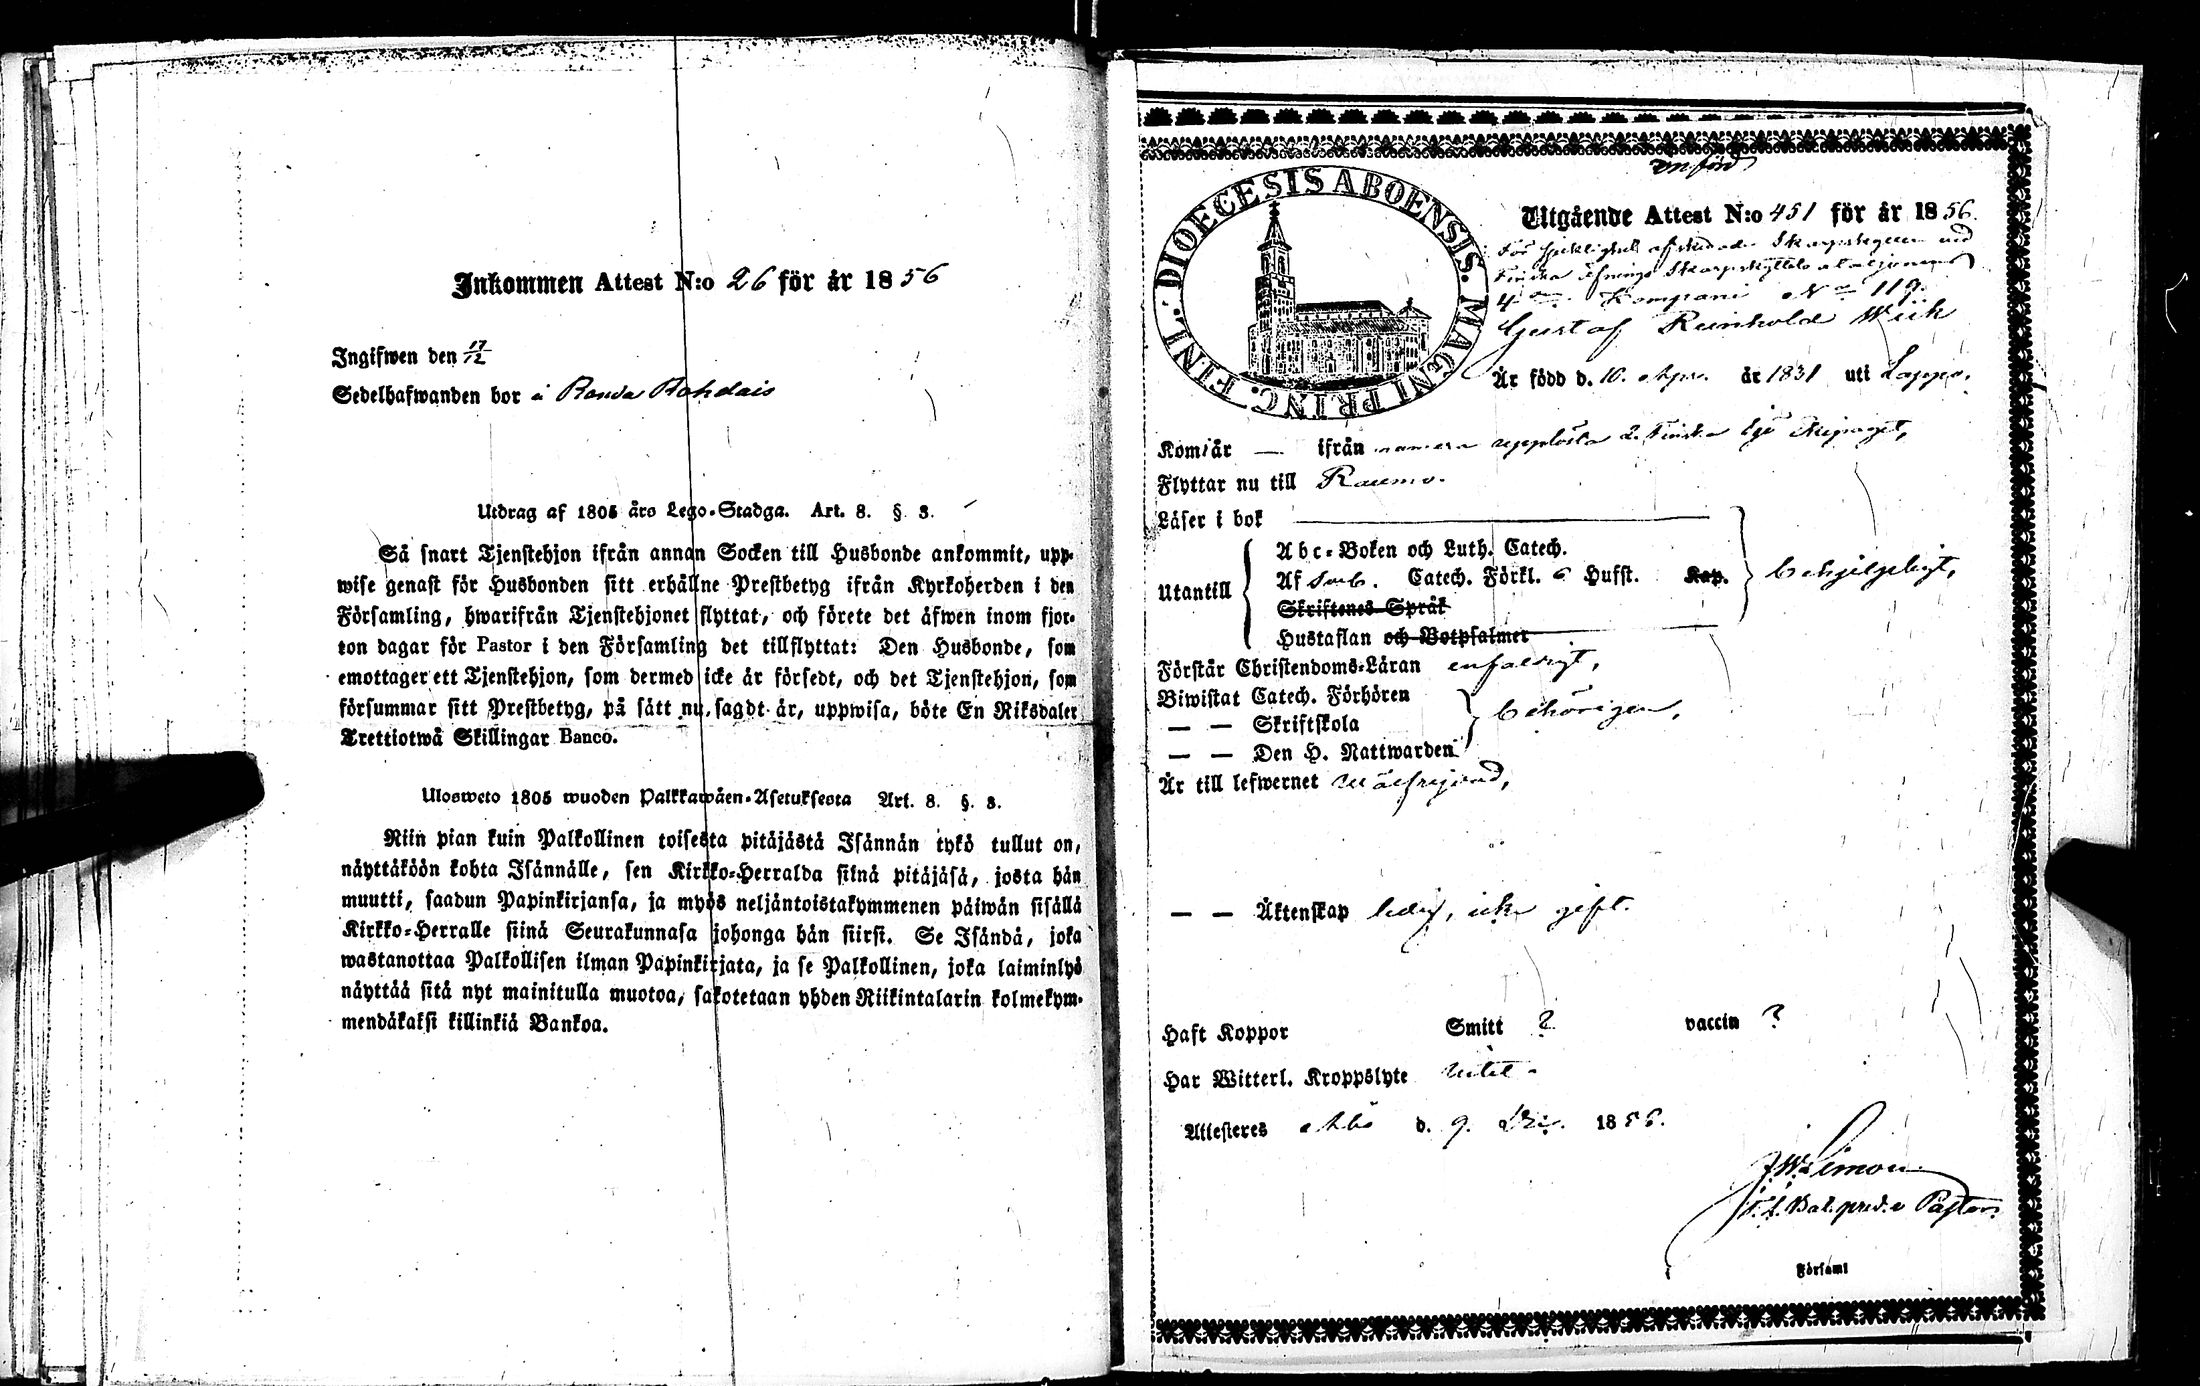 Inkommen Attest N:o 26 för år 1856
Ingifwen den 17/12
Sedelhafwanden bor å
Utdrag af 1805 års Lego-Stadga. Art. 8. § 3.
Så snart Tjenstehjon ifrån annan Socken till Husbonde ankommit, upp-
wise genast för Husbonden sitt erhållne Prestbetyg ifrån Kyrkoherden i den
Församling, hwarifrån Tjenstehjonet flyttat, och förete det äfwen inom fjor-
ton dagar för Pastor i den Församling det tillflyttat: Den Husbonde, som
emottager ett Tjenstehjon, som dermed icke är försedt, och det Tjenstehjon, som
försummar sitt Prestbetyg, på sätt nu sagdt är, uppwisa, böte En Riksdaler
Trettiotwå Skillingar Banco.
Ulosweto 1805 wuoden Palkkawäen-Asetuksesta Art. 8. §. 3.
Niin pian kuin Palkollinen toisesta pitäjästä Isännän tykö tullut on,
näyttäköön kohta Isännälle, sen Kirkko-Herralda siinä pitäjäsä, josta hän
muutti, saadun Papinkirjansa, ja myös neljäntoistakymmenen päiwän sisällä
Kirkko-Herralle siinä Seurakunnasa johonga hän siirsi. Se Isändä, joka
wastanottaa Palkollisen ilman Papinkirjata, ja se Palkollinen, joka laiminlyö
näyttää sitä nyt mainitulla muotoa, sakotetaan yhden Riikintalarin kolmekym-
mendäkaksi killinkiä Bankoa.
DIOECESIS ABOENSIS. MAGNI PRINC. FINL.
Utgående Attest N:o 451 för år 1856.
För sjuklighet afskedade Skarpskytten wid
Finska Öfnings Skarpskytte Bataljonens
4de Kompani No 119.
Gustaf Reinhold Wiik
Är född d. 10. Apr. år 1831 uti Lappo.
Kom år — ifrån numera upplösta 2. Finska
Flyttar nu till Raumo.
Läser i bok
Utantill
Abc-Boken och Luth. Catech.
Af Catech. Förkl. o Hufst. Kap.
Skriftenes Språk
Hustaflan och Botpsalmer
behjelpligt,
Förstår Christendoms-Läran enfaldigt,
Biwistat Catech. Förhören
— — Skriftskola
— — Den H. Nattwarden
behörigen,
Är till lefwernet wälfrejdad,
— — Äktenskap ledig, icke gift.
Haft Koppor Smitt ? vaccin ?
Har Witterl. Kroppslyte intet.
Attesteres Åbo d. 9. Dec. 1856.
Pastor.
Församl